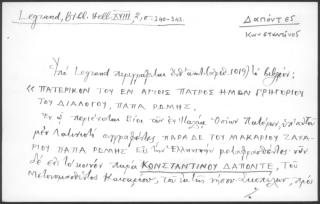 Legrand, Bibl. Hell. XVIII, 2, σ. 240-243.
Δαπόντες
Κωνσταντῖνος
Ὑπὸ Legrand περιγράφεται
« ΠΑΤΕΡΙΚΟΝ ΤΟΥ ΕΝ ΑΓΙΟΙΣ ΠΑΤΡΟΣ ΗΜΩΝ ΓΡΗΓΟΡΙΟΥ
ΤΟΥ ΔΙΑΛΟΓΟΥ, ΠΑΠΑ ΡΩΜΗΣ.
Ἐν ᾧ περιέχεται Βίοι τῶν ἐν Ἰταλίᾳ Ὁσίων Πατέρων,
μὲν Λατινιστὶ συγγραφέντες ΠΑΡΑ ΔΕ ΤΟΥ ΜΑΚΑΡΙΟΥ ΖΑΧΑ-
ΡΙΟΥ ΠΑΠΑ ΡΩΜΗΣ εἰς τὴν Ἑλληνικὴν μεταφρασθέντες νῦν
δὲ εἰς τὸ κοινὸν παρὰ ΚΩΝΣΤΑΝΤΙΝΟΥ ΔΑΠΟΝΤΕ, τοῦ
Μετονομασθέντος Καισαρίου, τοῦ ἐκ τῆς νήσου Σκοπέλων, πρὸς